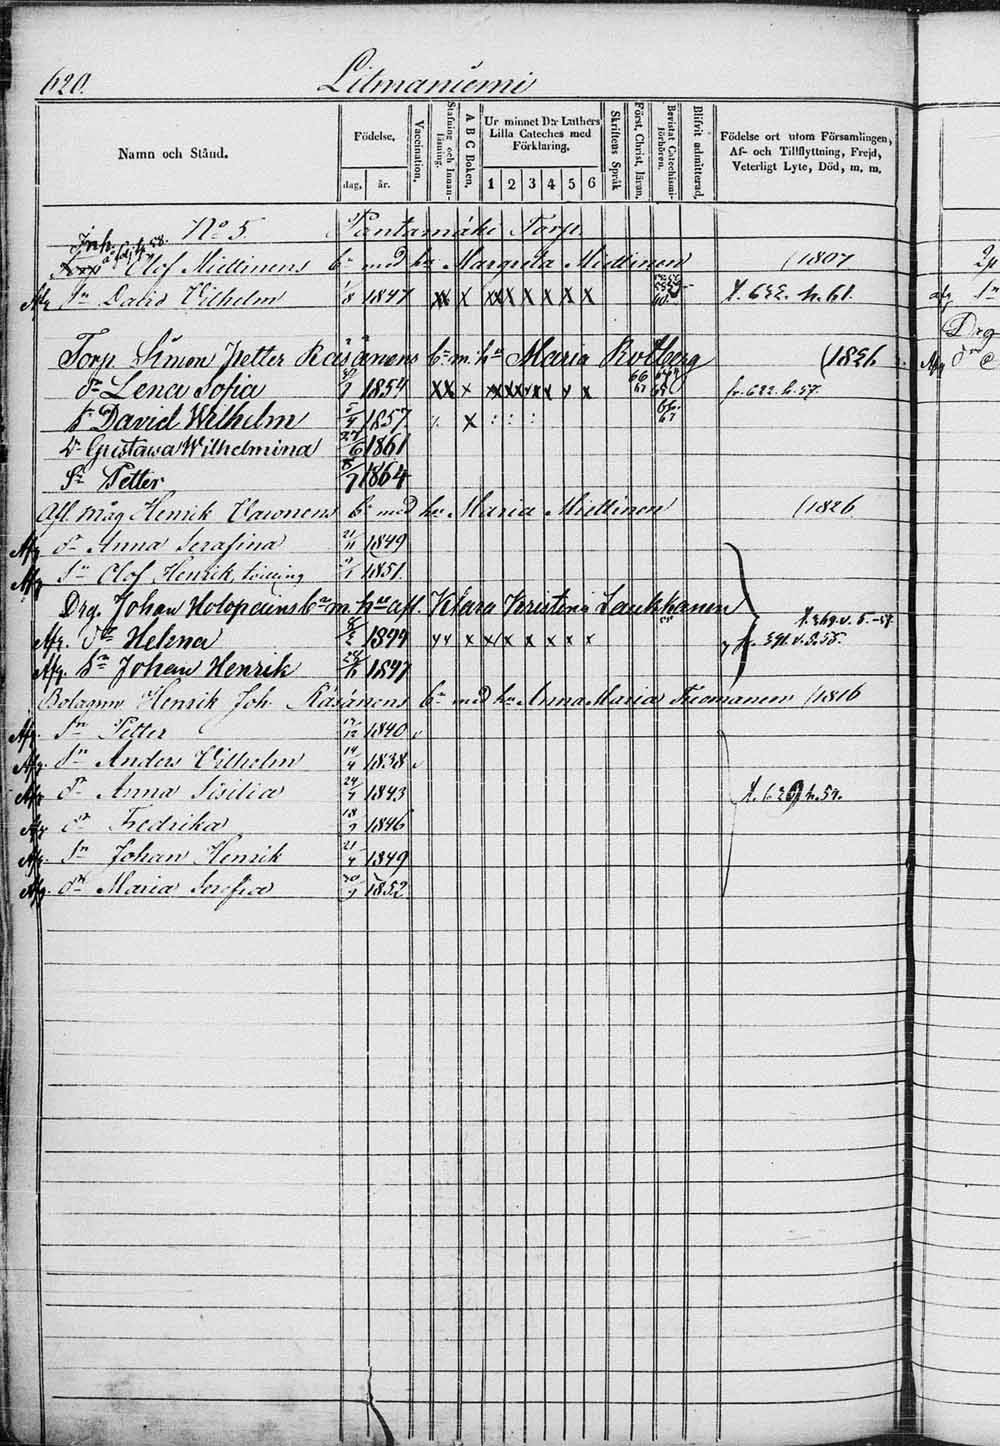 620. Litmaniemi
Namn och Stånd.
Födelse.
dag, år.
Vaccination.
Stafning och Innanläsning.
A B C Boken.
Ur minnet D:r Luthers Lilla Cateches med Förklaring.
1 2 3 4 5 6
Skriftens Språk
Först, Christ, läran.
Bevistat Catechismiförhören.
Blifvit admitterad.
Födelse ort utom Församlingen, Af- och Tillflyttning, Frejd, Veterligt Lyte, Död, m. m.
No 5. Pontamäki Torp.
Inh.
Olof Miettinens bn med hu Margreta Miettinen (1807
Afg Sn David Vilhelm 1/8 1847 XX X XX X X X X X t. 622. h. 61.
Torp. Simon Petter Räsänens bn m. hu Maria Rotberg (1826
dr Lena Sofia 1854 XX x fr. 622. h. 57.
Sn David Wilhelm 5/4 1857 X : : :
dr Gustawa Wilhelmina 27/6 1861
Sn Petter 8/7 1864
Afl. måg Henrik Varonens bn med hu Maria Miettinen (1826
Afg dr Anna Serafina 21/11 1849
Afg Sn Olof Henrik, tvilling 1851
Drg. Johan Holopainens bn m. hu afl. Klara Kristina Laukkanen
Afg. dr Helena 1844 x x x x x x x x
Afg. Sn Johan Henrik 1847
Bolagsm Henrik Joh. Räsänens bn med hu Anna Maria Tuomanen (1816
Afg. Sn Petter 17/12 1840 v
Afg. Sn Anders Vilhelm 14/4 1838 v
Afg dr Anna Sisilia 24/7 1843 t. 629 h. 59.
Afg dr Fredrika 18/9 1846
Afg. Sn Johan Henrik 21/4 1849
Afg. dr Maria Serefia 30/9 1852